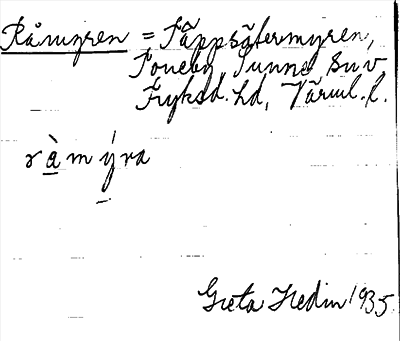 Råmyren = Täppsätermyren,
Toneby Sunne sn v
Fryksd. hd, Värml. l.
ràmýra
Greta Hedin 1935.